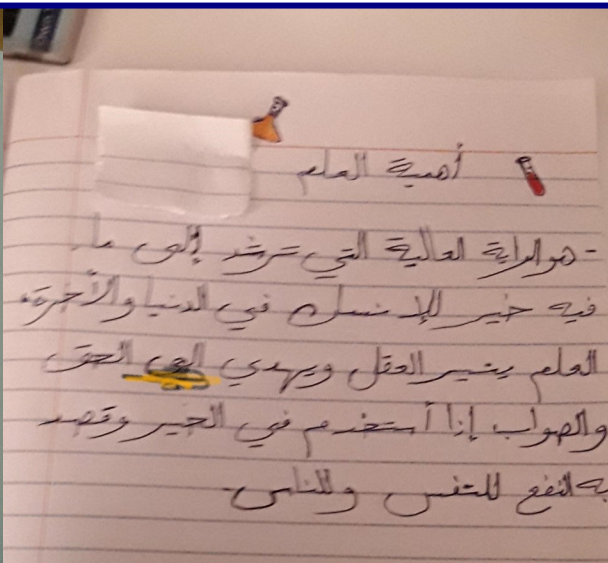 أهمية العلم
- هو الراية العالية التي ترشد إلى ما
فيه خير للإنسان في الدنيا والأخرة.
العلم ينير العقل ويهدي إلى الحق
والصواب إذا أستخدم في الخير وقصد
به النفع للنفس وللناس.